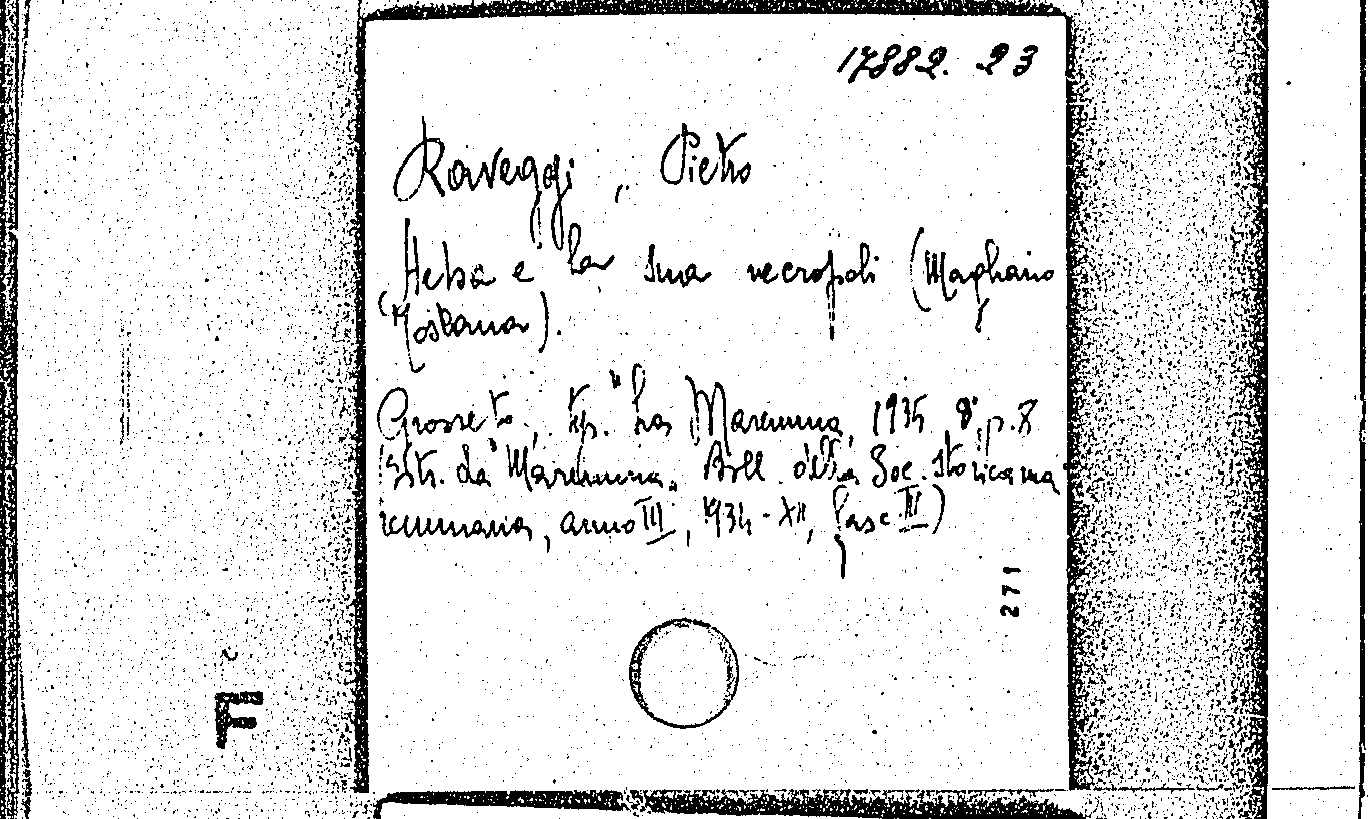 17882. 23
Raveggi, Pietro
Heba e la sua necropoli (Magliano
Toscana).
Grosseto, tip. "La Maremma, 1935 8°, p. 8
(Estr. da "Maremma„ Boll. della Soc. storica ma
remmana, anno III, 1934-XII, fasc. III)
271
F